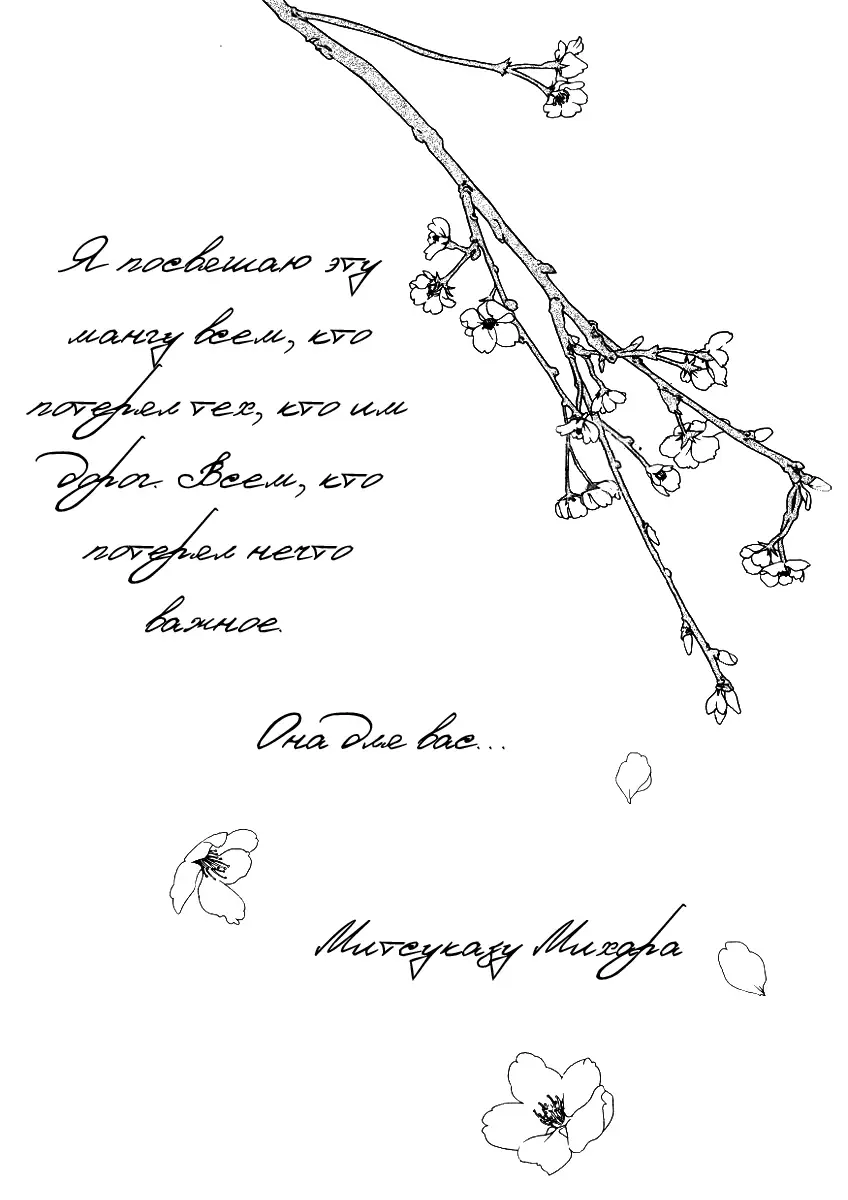 Я посвешаю эту
мангу всем, кто
потерял тех, кто им
дорог. Всем, кто
потерял нечто
важное.
Она для вас...
Митсуказу Михара